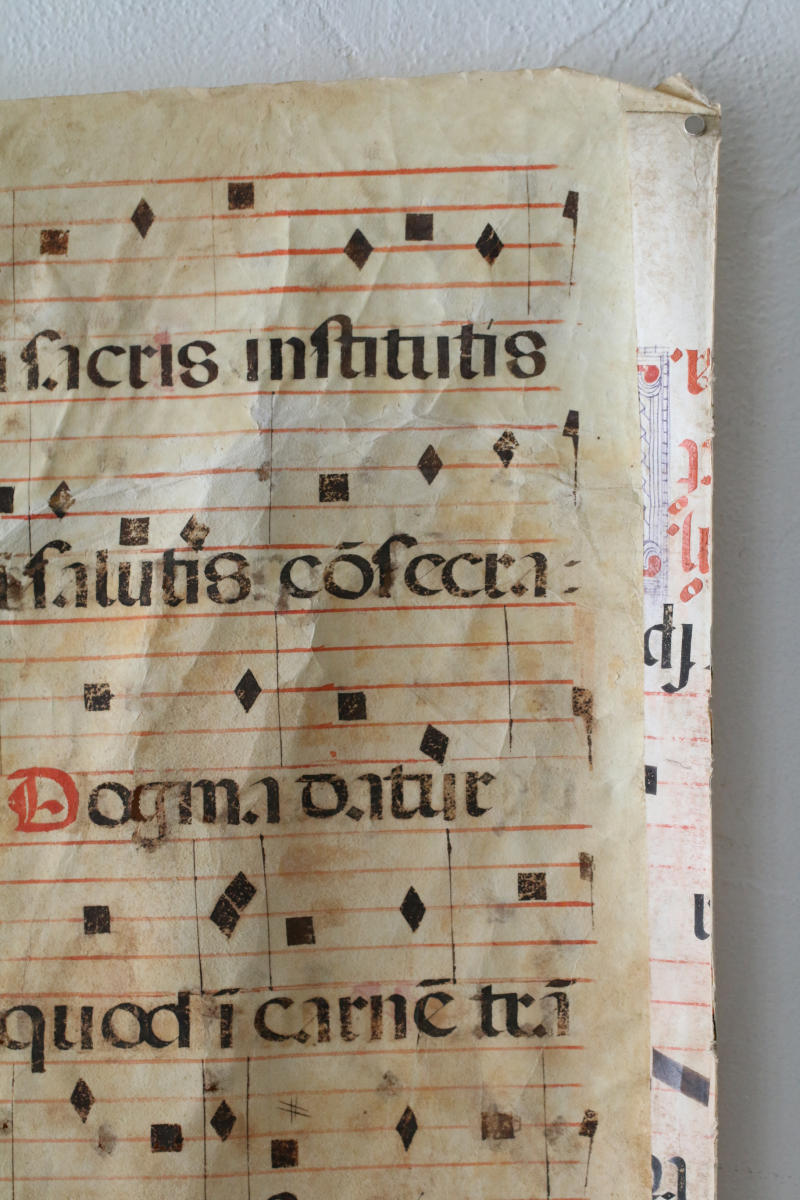 sacris institutis
salutis cōsecra-
Dogma datur
quod ī carnē trā